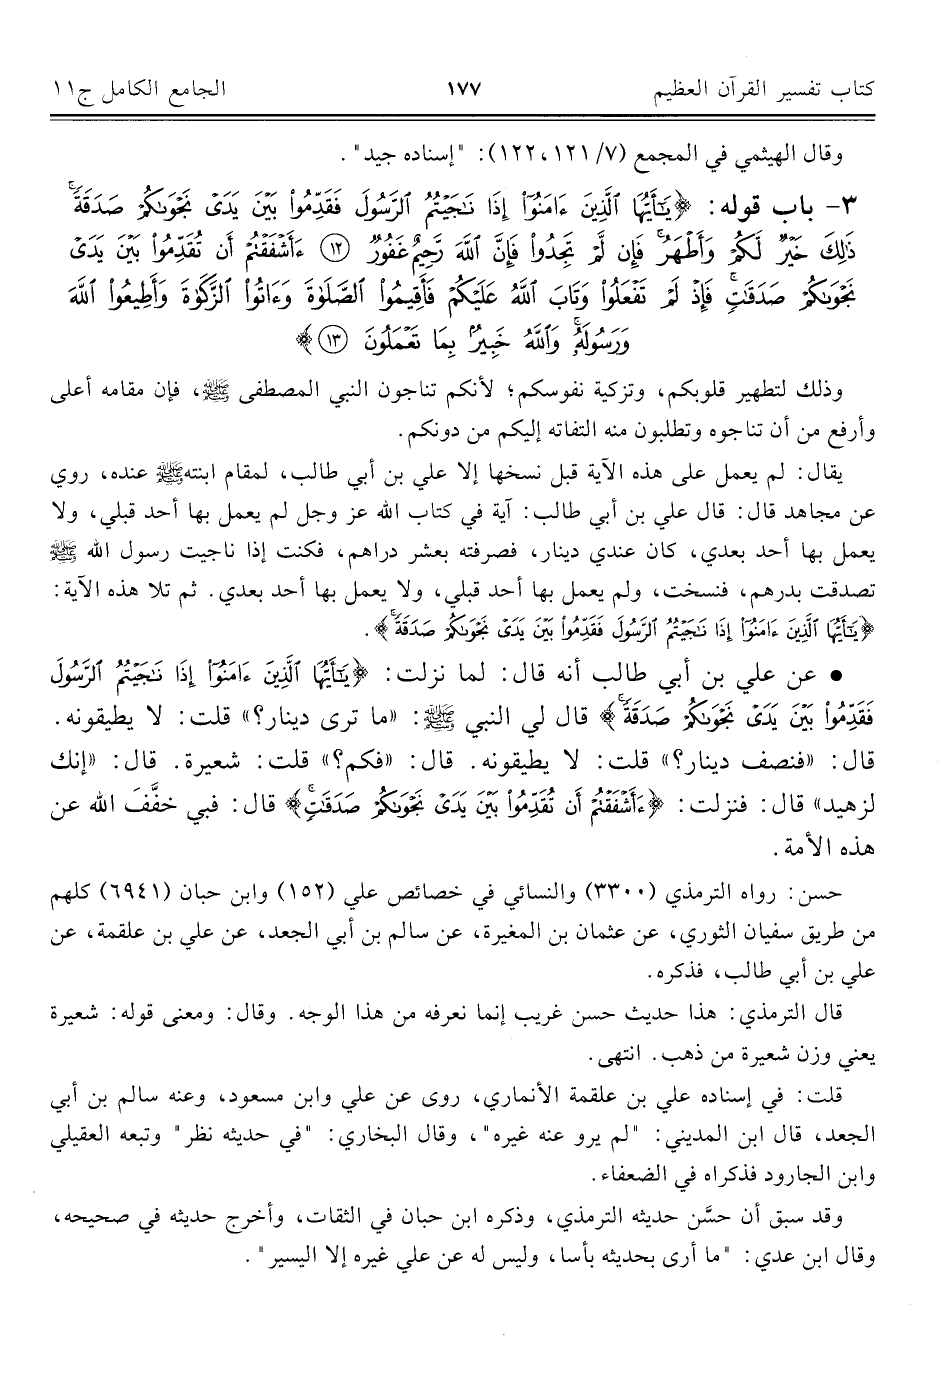 كتاب تفسير القرآن العظيم ١٧٧ الجامع الكامل ج١١
وقال الهيثمي في المجمع (٧/ ١٢١، ١٢٢): "إسناده جيد".
٣- باب قوله: ﴿يَٰٓأَيُّهَا ٱلَّذِينَ ءَامَنُوٓا۟ إِذَا نَٰجَيْتُمُ ٱلرَّسُولَ فَقَدِّمُوا۟ بَيْنَ يَدَىْ نَجْوَىٰكُمْ صَدَقَةً ۚ
ذَٰلِكَ خَيْرٌ لَّكُمْ وَأَطْهَرُ ۚ فَإِن لَّمْ تَجِدُوا۟ فَإِنَّ ٱللَّهَ غَفُورٌ رَّحِيمٌ ۝١٢ ءَأَشْفَقْتُمْ أَن تُقَدِّمُوا۟ بَيْنَ يَدَىْ
نَجْوَىٰكُمْ صَدَقَٰتٍ ۚ فَإِذْ لَمْ تَفْعَلُوا۟ وَتَابَ ٱللَّهُ عَلَيْكُمْ فَأَقِيمُوا۟ ٱلصَّلَوٰةَ وَءَاتُوا۟ ٱلزَّكَوٰةَ وَأَطِيعُوا۟ ٱللَّهَ
وَرَسُولَهُۥ ۚ وَٱللَّهُ خَبِيرٌۢ بِمَا تَعْمَلُونَ ۝١٣﴾
وذلك لتطهير قلوبكم، وتزكية نفوسكم؛ لأنكم تناجون النبي المصطفى ﷺ، فإن مقامه أعلى
وأرفع من أن تناجوه وتطلبون منه التفاته إليكم من دونكم.
يقال: لم يعمل على هذه الآية قبل نسخها إلا علي بن أبي طالب، لمقام ابنته ﷺ عنده، روي
عن مجاهد قال: قال علي بن أبي طالب: آية في كتاب الله عز وجل لم يعمل بها أحد قبلي، ولا
يعمل بها أحد بعدي، كان عندي دينار، فصرفته بعشر دراهم، فكنت إذا ناجيت رسول الله ﷺ
تصدقت بدرهم، فنسخت، ولم يعمل بها أحد قبلي، ولا يعمل بها أحد بعدي. ثم تلا هذه الآية:
﴿يَٰٓأَيُّهَا ٱلَّذِينَ ءَامَنُوٓا۟ إِذَا نَٰجَيْتُمُ ٱلرَّسُولَ فَقَدِّمُوا۟ بَيْنَ يَدَىْ نَجْوَىٰكُمْ صَدَقَةً ۚ﴾.
● عن علي بن أبي طالب أنه قال: لما نزلت: ﴿يَٰٓأَيُّهَا ٱلَّذِينَ ءَامَنُوٓا۟ إِذَا نَٰجَيْتُمُ ٱلرَّسُولَ
فَقَدِّمُوا۟ بَيْنَ يَدَىْ نَجْوَىٰكُمْ صَدَقَةً ۚ﴾ قال لي النبي ﷺ: «ما ترى دينار؟» قلت: لا يطيقونه.
قال: «فنصف دينار؟» قلت: لا يطيقونه. قال: «فكم؟» قلت: شعيرة. قال: «إنك
لزهيد» قال: فنزلت: ﴿ءَأَشْفَقْتُمْ أَن تُقَدِّمُوا۟ بَيْنَ يَدَىْ نَجْوَىٰكُمْ صَدَقَٰتٍ ۚ﴾ قال: فبي خفَّفَ الله عن
هذه الأمة.
حسن: رواه الترمذي (٣٣٠٠) والنسائي في خصائص علي (١٥٢) وابن حبان (٦٩٤١) كلهم
من طريق سفيان الثوري، عن عثمان بن المغيرة، عن سالم بن أبي الجعد، عن علي بن علقمة، عن
علي بن أبي طالب، فذكره.
قال الترمذي: هذا حديث حسن غريب إنما نعرفه من هذا الوجه. وقال: ومعنى قوله: شعيرة
يعني وزن شعيرة من ذهب. انتهى.
قلت: في إسناده علي بن علقمة الأنماري، روى عن علي وابن مسعود، وعنه سالم بن أبي
الجعد، قال ابن المديني: "لم يرو عنه غيره"، وقال البخاري: "في حديثه نظر" وتبعه العقيلي
وابن الجارود فذكراه في الضعفاء.
وقد سبق أن حسَّن حديثه الترمذي، وذكره ابن حبان في الثقات، وأخرج حديثه في صحيحه،
وقال ابن عدي: "ما أرى بحديثه بأسا، وليس له عن علي غيره إلا اليسير".